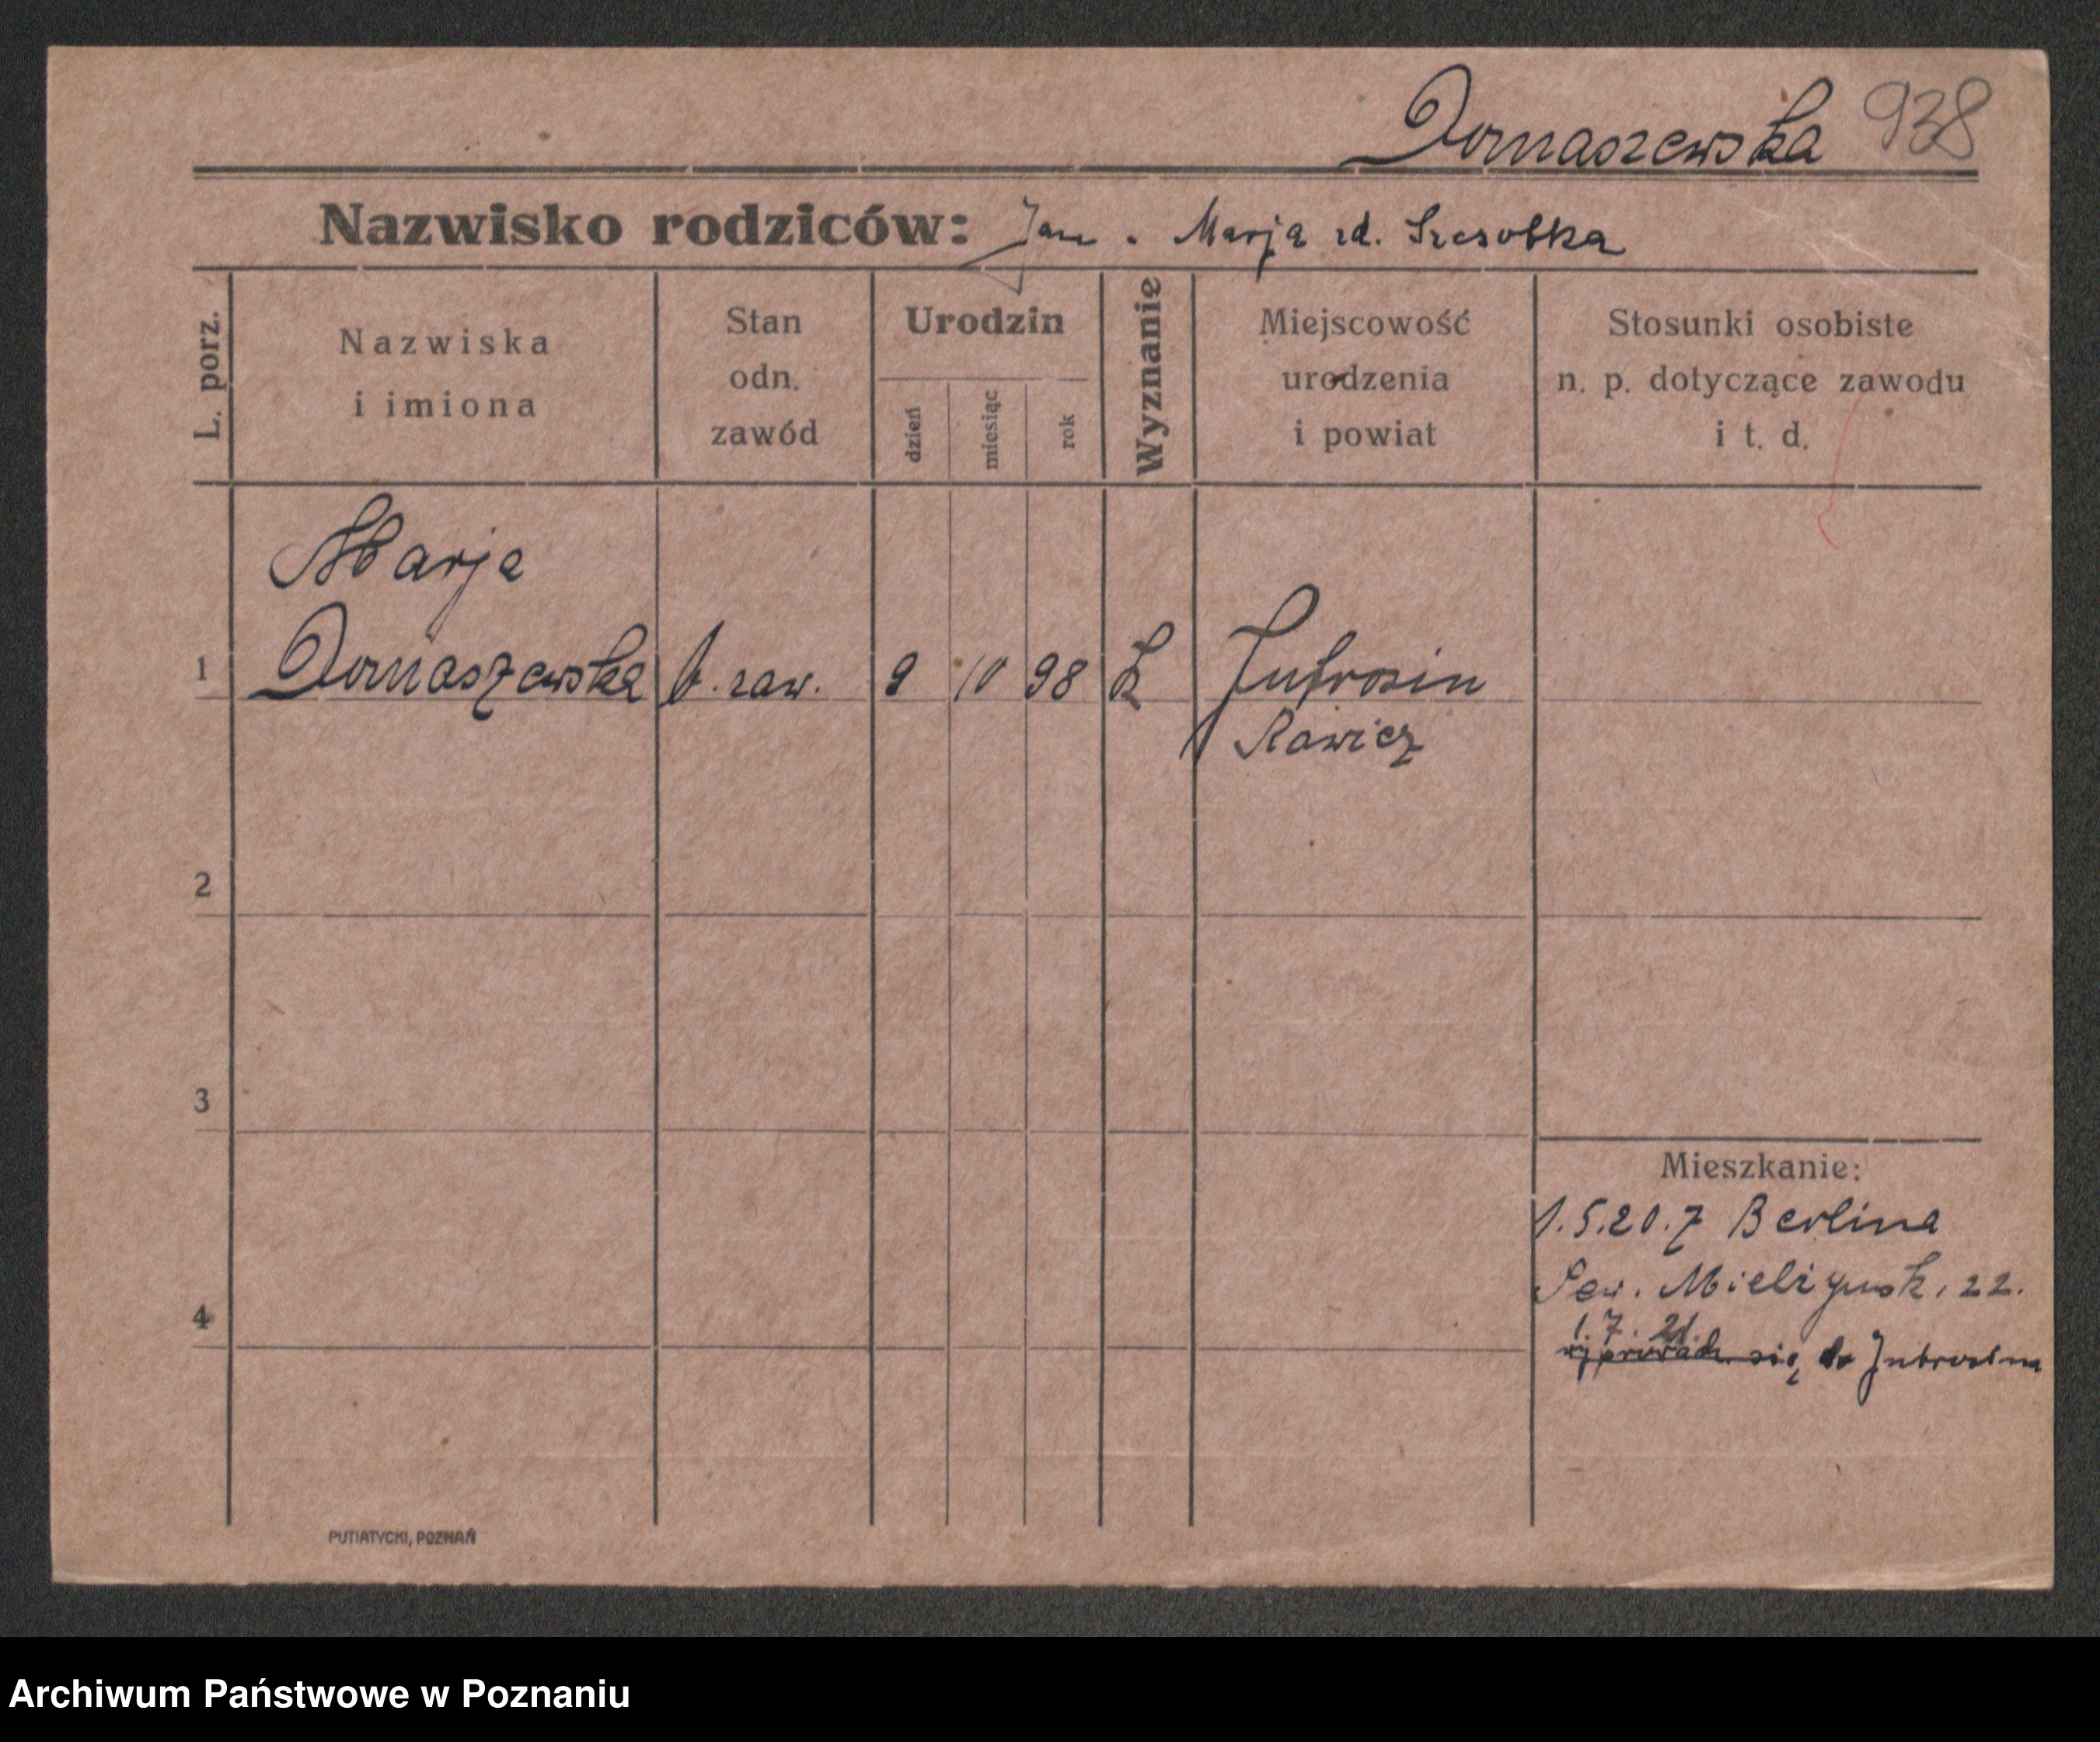 Domaszewska 938
Nazwisko rodziców: Jan . Marja zd.
L. porz.
Nazwiska
i imiona
Stan
odn.
zawód
Urodzin
dzień
miesiąc
rok
Wyznanie
Miejscowość
urodzenia
i powiat
Stosunki osobiste
n. p. dotyczące zawodu
i t. d.
Marja
1 Domaszewska b. zaw. 9 10 98 K Jutrosin
Rawicz
2
3
Mieszkanie:
1.5.20. z Berlina
Sew. Mielżyńsk. 22.
4
1. 7. 21.
wyprowadz. się do Jutrosina
PUTIATYCKI, POZNAŃ
Archiwum Państwowe w Poznaniu